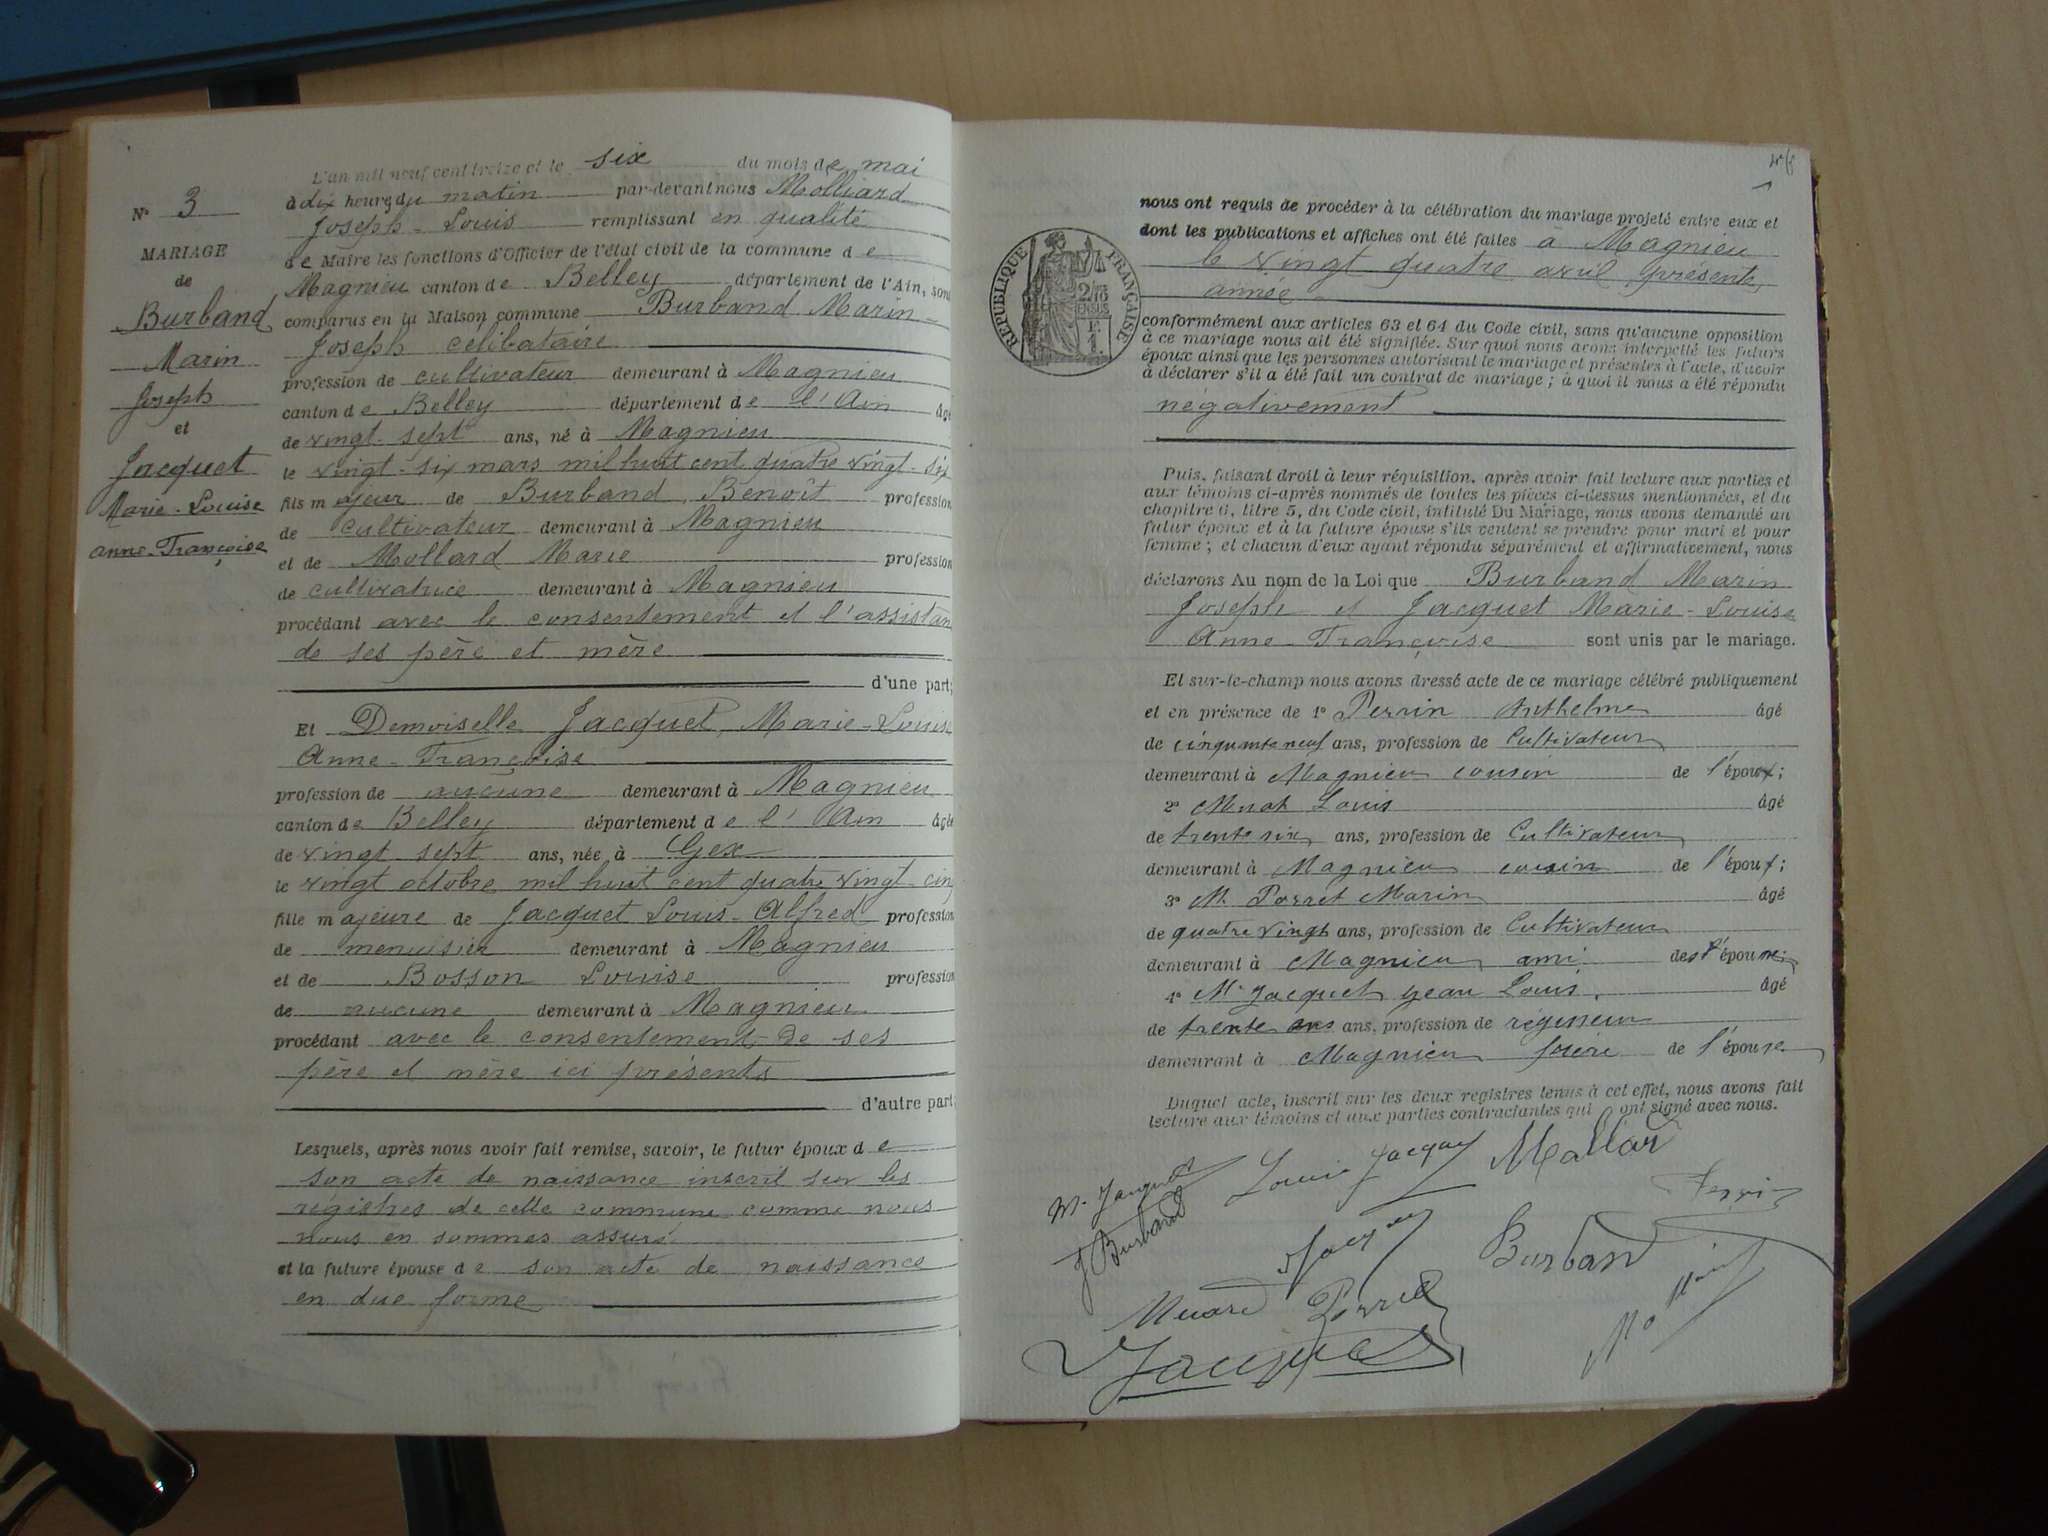 N° 3
MARIAGE
de
Burband
Marin
Joseph
et
Jacquet
Marie-Louise
Anne-Françoise
L'an mil neuf cent treize et le six du mois de mai
à dix heures du matin par-devant nous Molliard
Joseph-Louis remplissant en qualité
de Maire les fonctions d'Officier de l'état civil de la commune de
Magnieu canton de Belley département de l'Ain, sont
comparus en la Maison commune Burband Marin-
Joseph célibataire
profession de cultivateur demeurant à Magnieu
canton de Belley département de l'Ain âgé
de vingt-sept ans, né à Magnieu
le vingt-six mars mil huit cent quatre vingt-six
fils majeur de Burband Benoît profession
de cultivateur demeurant à Magnieu
et de Mollard Marie profession
de cultivatrice demeurant à Magnieu
procédant avec le consentement et l'assistan
de ses père et mère
d'une part;
Et Demoiselle Jacquet, Marie-Louise
Anne-Françoise
profession de aucune demeurant à Magnieu
canton de Belley département de l'Ain âgée
de vingt sept ans, née à Gex
le vingt octobre mil huit cent quatre vingt-cinq
fille majeure de Jacquet Louis-Alfred profession
de menuisier demeurant à Magnieu
et de Bosson Louise profession
de aucune demeurant à Magnieu
procédant avec le consentement de ses
père et mère ici présents
d'autre part;
Lesquels, après nous avoir fait remise, savoir, le futur époux de
son acte de naissance inscrit sur les
régistres de cette commune comme nous
nous en sommes assuré
et la future épouse de son acte de naissance
en due forme
RÉPUBLIQUE FRANÇAISE
2/10
EN SUS
F.
1.
nous ont requis de procéder à la célébration du mariage projeté entre eux et
dont les publications et affiches ont été faites à Magnieu
le vingt quatre avril, présente
année
conformément aux articles 63 et 64 du Code civil, sans qu'aucune opposition
à ce mariage nous ait été signifiée. Sur quoi nous avons interpellé les futurs
époux ainsi que les personnes autorisant le mariage et présentes à l'acte, d'avoir
à déclarer s'il a été fait un contrat de mariage; à quoi il nous a été répondu
négativement
Puis, faisant droit à leur réquisition, après avoir fait lecture aux parties et
aux témoins ci-après nommés de toutes les pièces ci-dessus mentionnées, et du
chapitre 6, titre 5, du Code civil, intitulé Du Mariage, nous avons demandé au
futur époux et à la future épouse s'ils veulent se prendre pour mari et pour
femme; et chacun d'eux ayant répondu séparément et affirmativement, nous
déclarons Au nom de la Loi que Burband Marin
Joseph et Jacquet Marie-Louise
Anne-Françoise sont unis par le mariage.
Et sur-le-champ nous avons dressé acte de ce mariage célébré publiquement
et en présence de 1° Perrin Anthelme âgé
de cinquante neuf ans, profession de Cultivateur
demeurant à Magnieu cousin de l'époux;
2° Murat Louis âgé
de trente six ans, profession de Cultivateur
demeurant à Magnieu cousin de l'époux;
3° M. Porret Marin âgé
de quatre vingt ans, profession de Cultivateur
demeurant à Magnieu ami des époux;
4° Mr Jacquet Jean Louis, âgé
de trente ans ans, profession de régisseur
demeurant à Magnieu frère de l'épouse
Duquel acte, inscrit sur les deux registres tenus à cet effet, nous avons fait
lecture aux témoins et aux parties contractantes qui ont signé avec nous.
M. Jacquet Louis Jacquet Mollard
J Burband Jacquet Burband Perrin
Porret
Jacquet